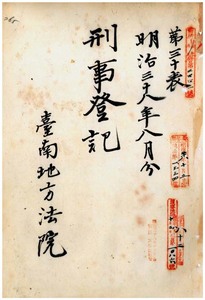 第三十表
明治三十八年八月分
刑事登記
臺南地方法院